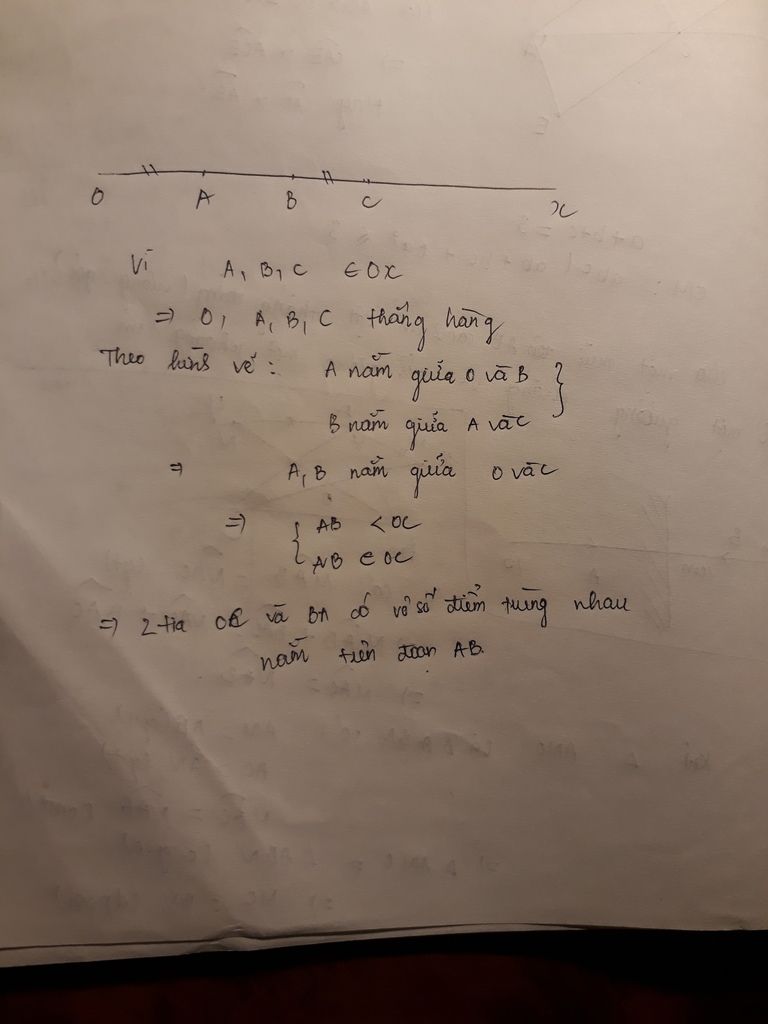 O A B C x
Vì A, B, C ∈ Ox
=> O, A, B, C thẳng hàng
Theo hình vẽ : A nằm giữa O và B }
B nằm giữa A và C
=> A, B nằm giữa O và C
=> { AB < OC
AB ∈ OC
=> 2 tia OC và BA có vô số điểm trùng nhau
nằm trên đoạn AB.